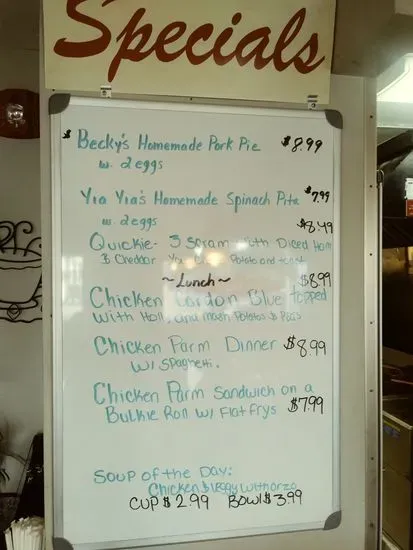 Specials
Becky's Homemade Pork Pie $8.99
w. 2 eggs
Yia Yia's Homemade Spinach Pita $7.99
w. 2 eggs
$8.49
Quickie - 3 Scram with Diced Ham
& Cheddar Potato and toast
~Lunch~
$8.99
Chicken Cordon Blue topped
with Holl. and mash Potatos & Peas
Chicken Parm Dinner $8.99
w/ Spaghetti.
Chicken Parm Sandwich on a
Bulkie Roll w/ Flat frys $7.99
Soup of the Day:
Chicken & Veggy with orzo
CUP $2.99 Bowl $3.99